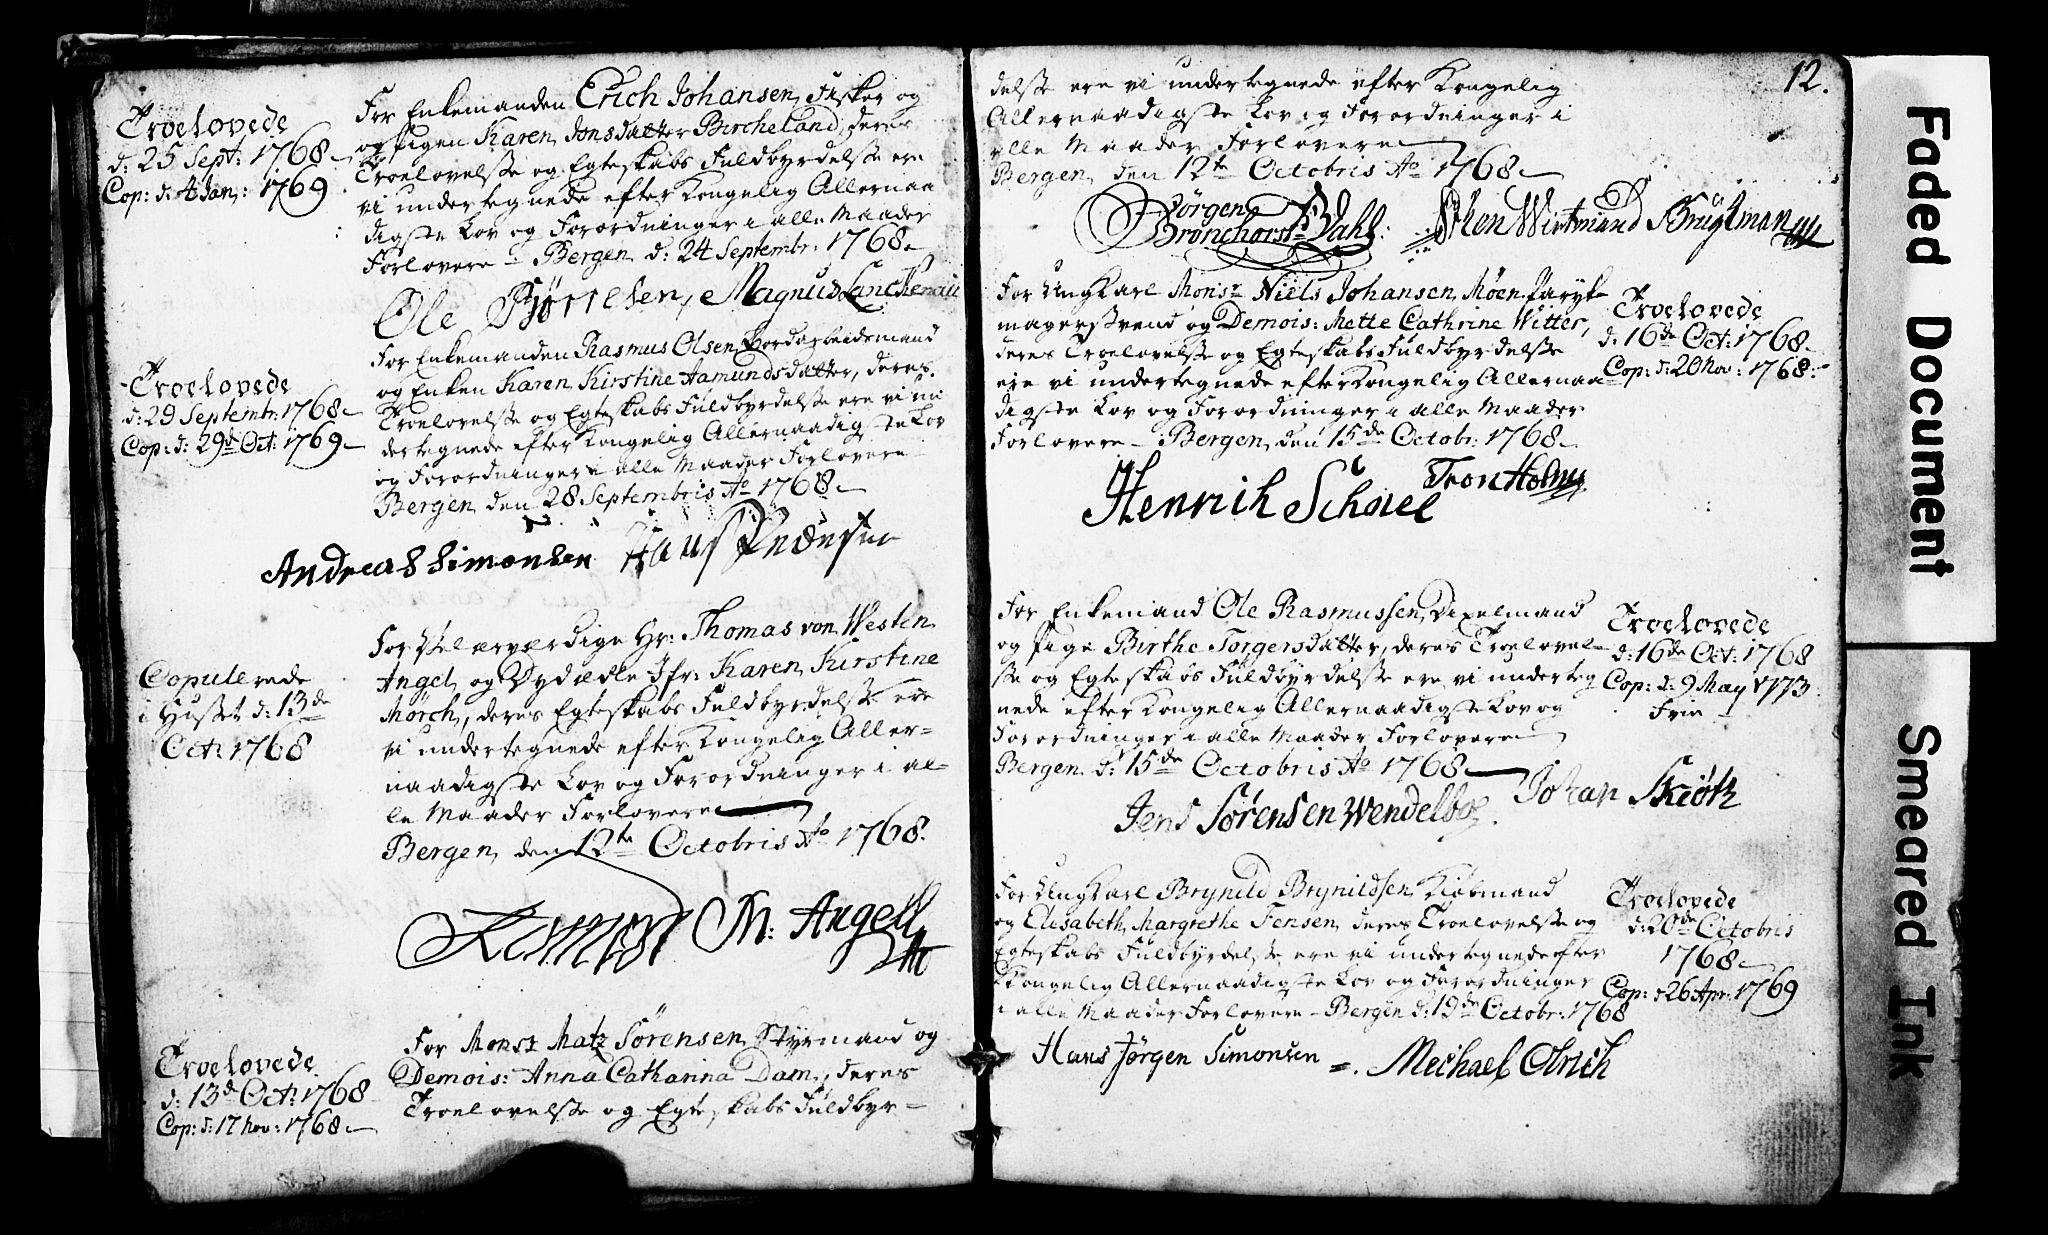 Troelovede
d: 25 Sept: 1768
Cop: d: 4 Jan: 1769
For Enkemanden Erich Johansen, Fisker og
og Pigen Karen Jonsdatter Bircheland, deres
Troelovelse og Egteskabs Fuldbyrdelse ere
vi undertegnede efter Kongelig Allernaa
digste Lov og Forordninger i alle Maader
Forlovere - Bergen d: 24 Septembr: 1768
Ole Magnus
Troelovede
d: 29 Septembr: 1768
Cop: d: 29de Oct: 1769
For Enkemanden Rasmus Olsen, Bordarbeidsmand
og Enken Karen Kirstine Aamundsdatter, deres
Troelovelse og Egteskabs Fuldbyrdelse ere vi un
dertegnede efter Kongelig Allernaadigste Lov
og Forordninger i alle Maader Forlovere
Bergen den 28 Septembris Ao 1768
Andreas Simonsen Hans Pedersen
Copulerede
i Huset d: 13de
Oct: 1768
For Velærværdige Hr: Thomas von Westen
Angel, og Dydædle Jfr: Karen Kirstine
Mörch, deres Egteskabs Fuldbyrdelse ere
vi undertegnede efter Kongelig Aller=
naadigste Lov og Forordninger i al=
le Maader Forlovere
Bergen den 12te Octobris Ao 1768.
M: Angell
Troelovede
d: 13de Oct: 1768
Cop: d: 17 Nov: 1768
For Monsr Matz Sörensen, Styrmand og
Demois: Anna Catharina Dam, deres
Troelovelse og Egteskabs Fuldbyr=
12.
delse ere vi undertegnede efter Kongelig
Allernaadigste Lov og Forordninger i
alle Maader Forlovere
Bergen den 12te Octobris Ao 1768
Jörgen
Bronchorst Dahl: Wirtmand Brügman
For Ungkarl Monsr Niels Johansen Möen Paryk=
magersvend og Demois: Mette Cathrine Witter,
deres Troelovelse og Egteskabs Fuldbyrdelse
ere vi undertegnede efter Kongelig Allernaa=
digste Lov og Forordninger i alle Maader
Forlovere - Bergen den 15de Octobr: 1768
Troelovede
d: 16de Oct: 1768
Cop: d: 20 Nov: 1768
Henrich Tron Holm
For Enkemand Ole Rasmussen, Dixelmand
og Pige Birthe Torgersdatter, deres Troelovel=
se og Egteskabs Fuldbyrdelse ere vi underteg
nede efter Kongelig Allernaadigste Lov og
Forordninger i alle Maader Forlovere
Bergen d: 15de Octobris Ao 1768
Troelovede
d: 16de Oct: 1768
Cop: d: 9 May 1773
Jens Sörensen Wendelboe Johan Skiöt
For Ungkarl Brynild Brynildsen Kiöbmand
og Elisabeth Margrethe Jensen, deres Troelovelse og
Egteskabs Fuldbyrdelse ere vi undertegnede efter
Kongelig Allernaadigste Lov og Forordninger
i alle Maader Forlovere - Bergen d: 19de Octobr: 1768
Troelovede
d: 20de Octobris
1768
Cop: d 26 Apr: 1769
Hans Jörgen Simonsen Mechael Olrich
Faded Document
Smeared Ink